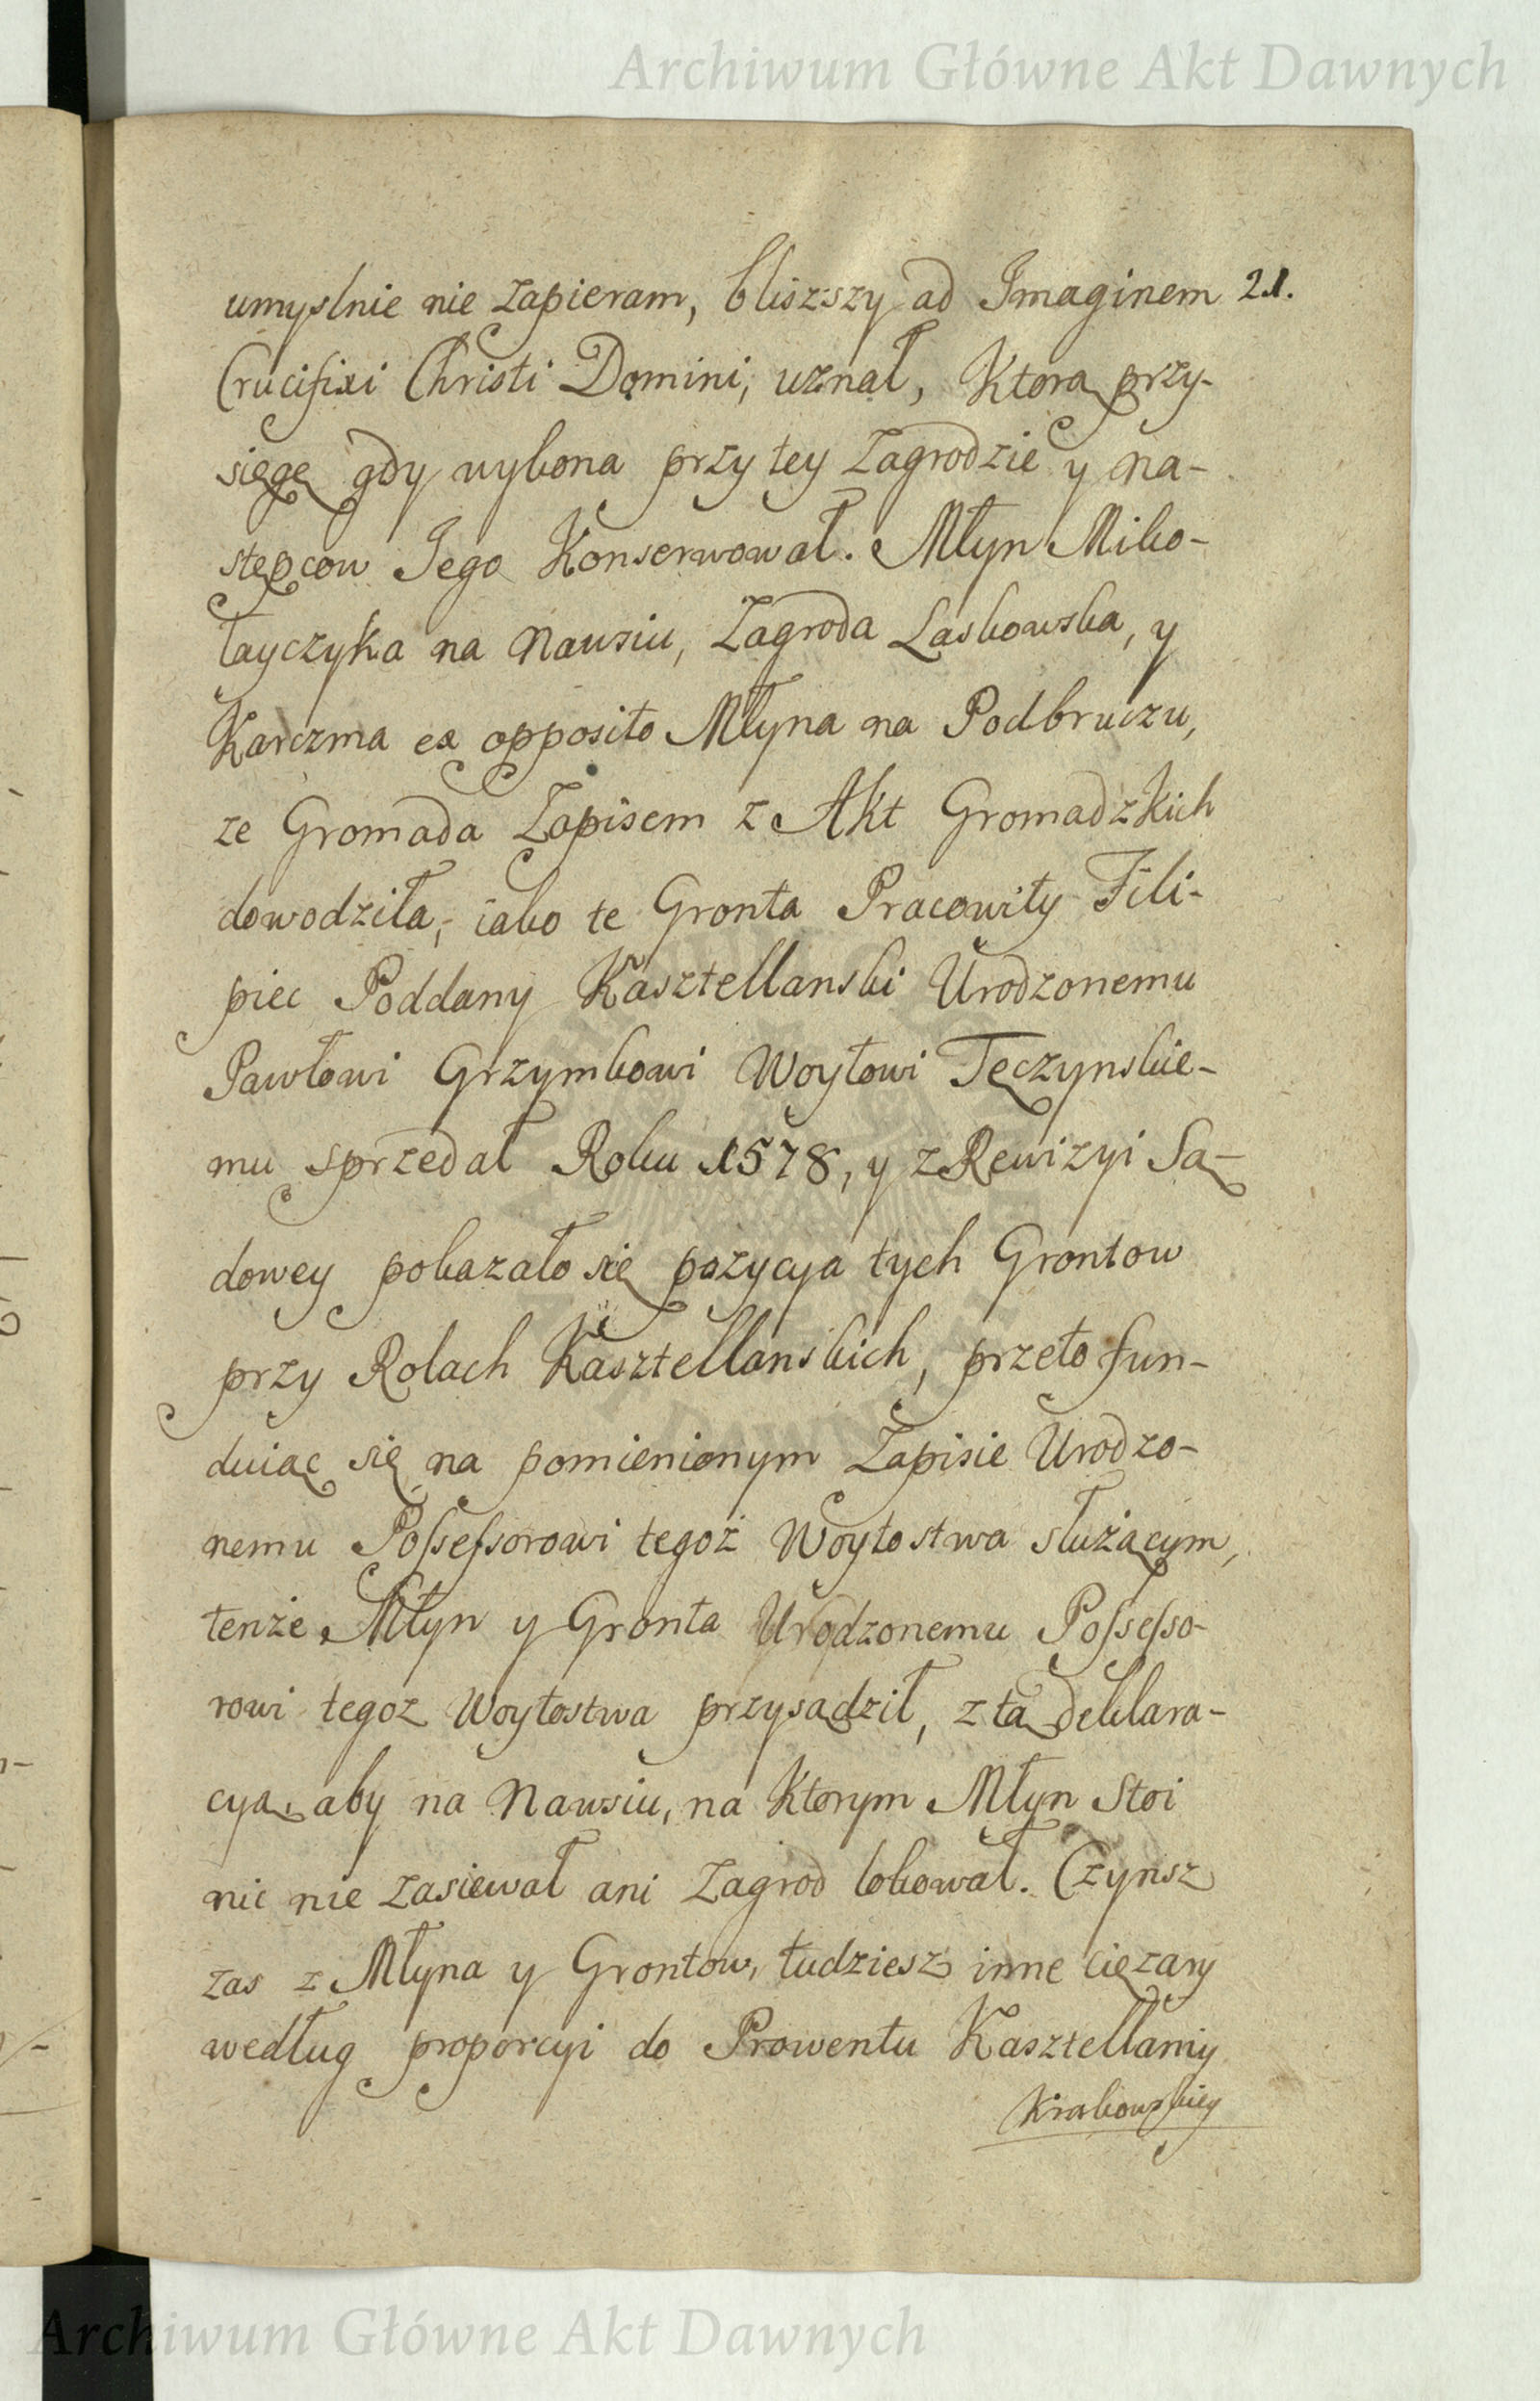 Archiwum Główne Akt Dawnych
umyslnie nie zapieram, bliszszy ad Imaginem 21.
Crucifixi Christi Domini, uznał, Ktorą przy-
sięgę gdy wykona przy tey Zagrodzie y na-
stępcow Jego Konserwował. Młyn Miko-
łayczyka na Nawsiu, Zagroda Laskowska, y
Karczma ex opposito Młyna na Podbruczu,
ze Gromada Zapisem z Akt Gromadzkich
dowodziła, iako te Gronta Pracowity Fili-
piec Poddany Kasztellanski Urodzonemu
Pawłowi Grzymkowi Woytowi Tęczynskie-
mu sprzedał Roku 1578, y z Rewizyi Są-
dowey pokazało się pozycya tych Grontow
przy Rolach Kasztellanskich, przeto fun-
duiąc się na pomienionym Zapisie Urodzo-
nemu Possessorowi tegoż Woytostwa służącym,
tenże Młyn y Gronta Urodzonemu Possesso-
rowi tegoz Woytostwa przysądził, z tą deklara-
cyą, aby na Nawsiu, na Ktorym Młyn Stoi
nic nie zasiewał ani Zagrod lokował. Czynsz
zas z Młyna y Grontow, tudziesz inne cięzary
według proporcyi do Prowentu Kasztellaniy
Krakowskiey
Archiwum Główne Akt Dawnych